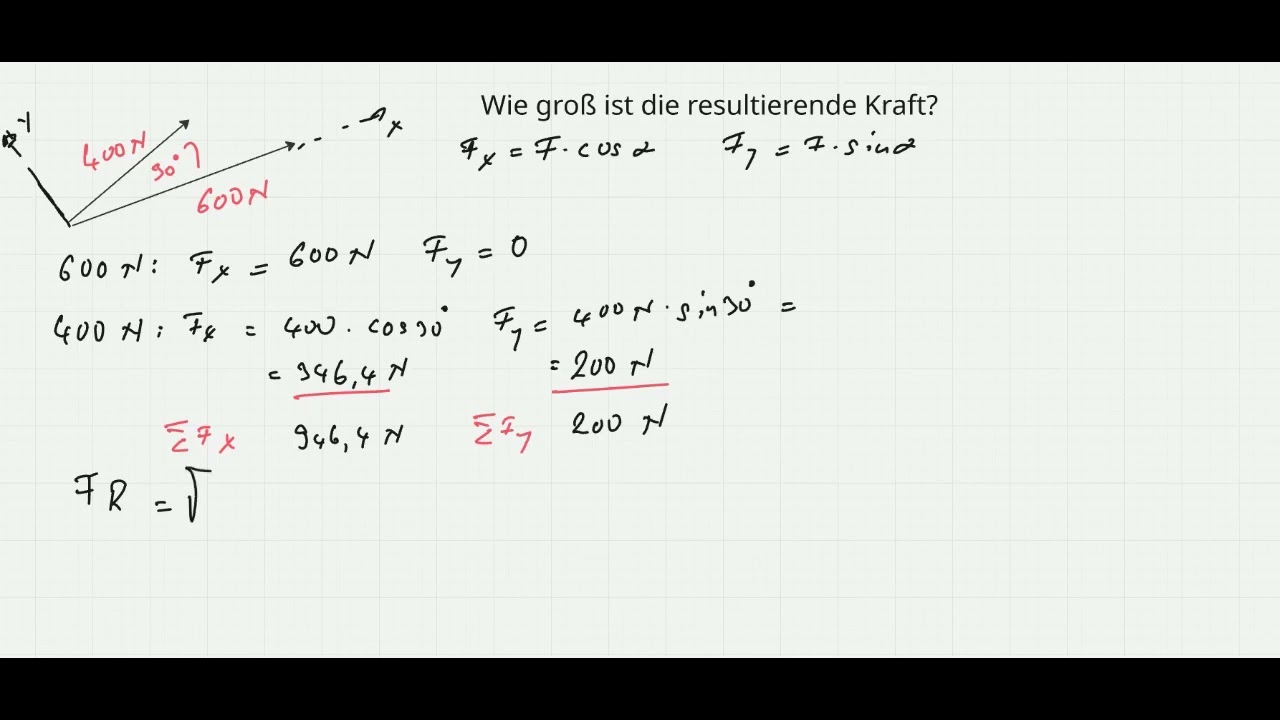 Wie groß ist die resultierende Kraft?
y
x
400N
30°
600N
Fx = F · cos α   Fy = F · sin α
600 N: Fx = 600 N   Fy = 0
400 N: Fx = 400 · cos 30°   Fy = 400 N · sin 30° =
= 346,4 N   = 200 N
ΣFx 946,4 N   ΣFy 200 N
FR = √